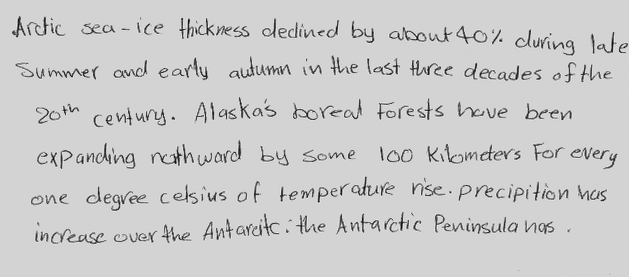 Arctic sea-ice thickness declined by about 40% during late
Summer and early autumn in the last three decades of the
20th century. Alaska's boreal Forests have been
expanding northward by some 100 Kilometers For every
one degree celsius of temperature rise. precipition has
increase over the Antarcitc. the Antarctic Peninsula has.